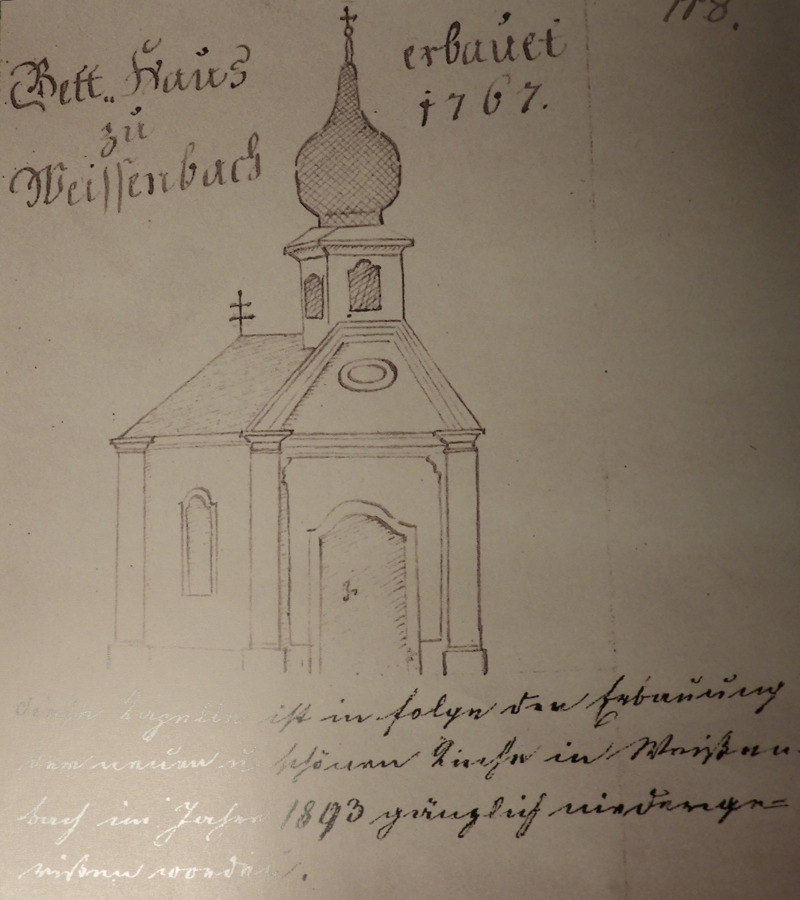 118.
Bett„Haus
zu
Weissenbach
erbauet
1767.
diese Kapelle ist in folge der Erbauung
der neuen u schönen Kirche in Weißen-
bach im Jahre 1893 gänzlich niederge=
rißen worden.